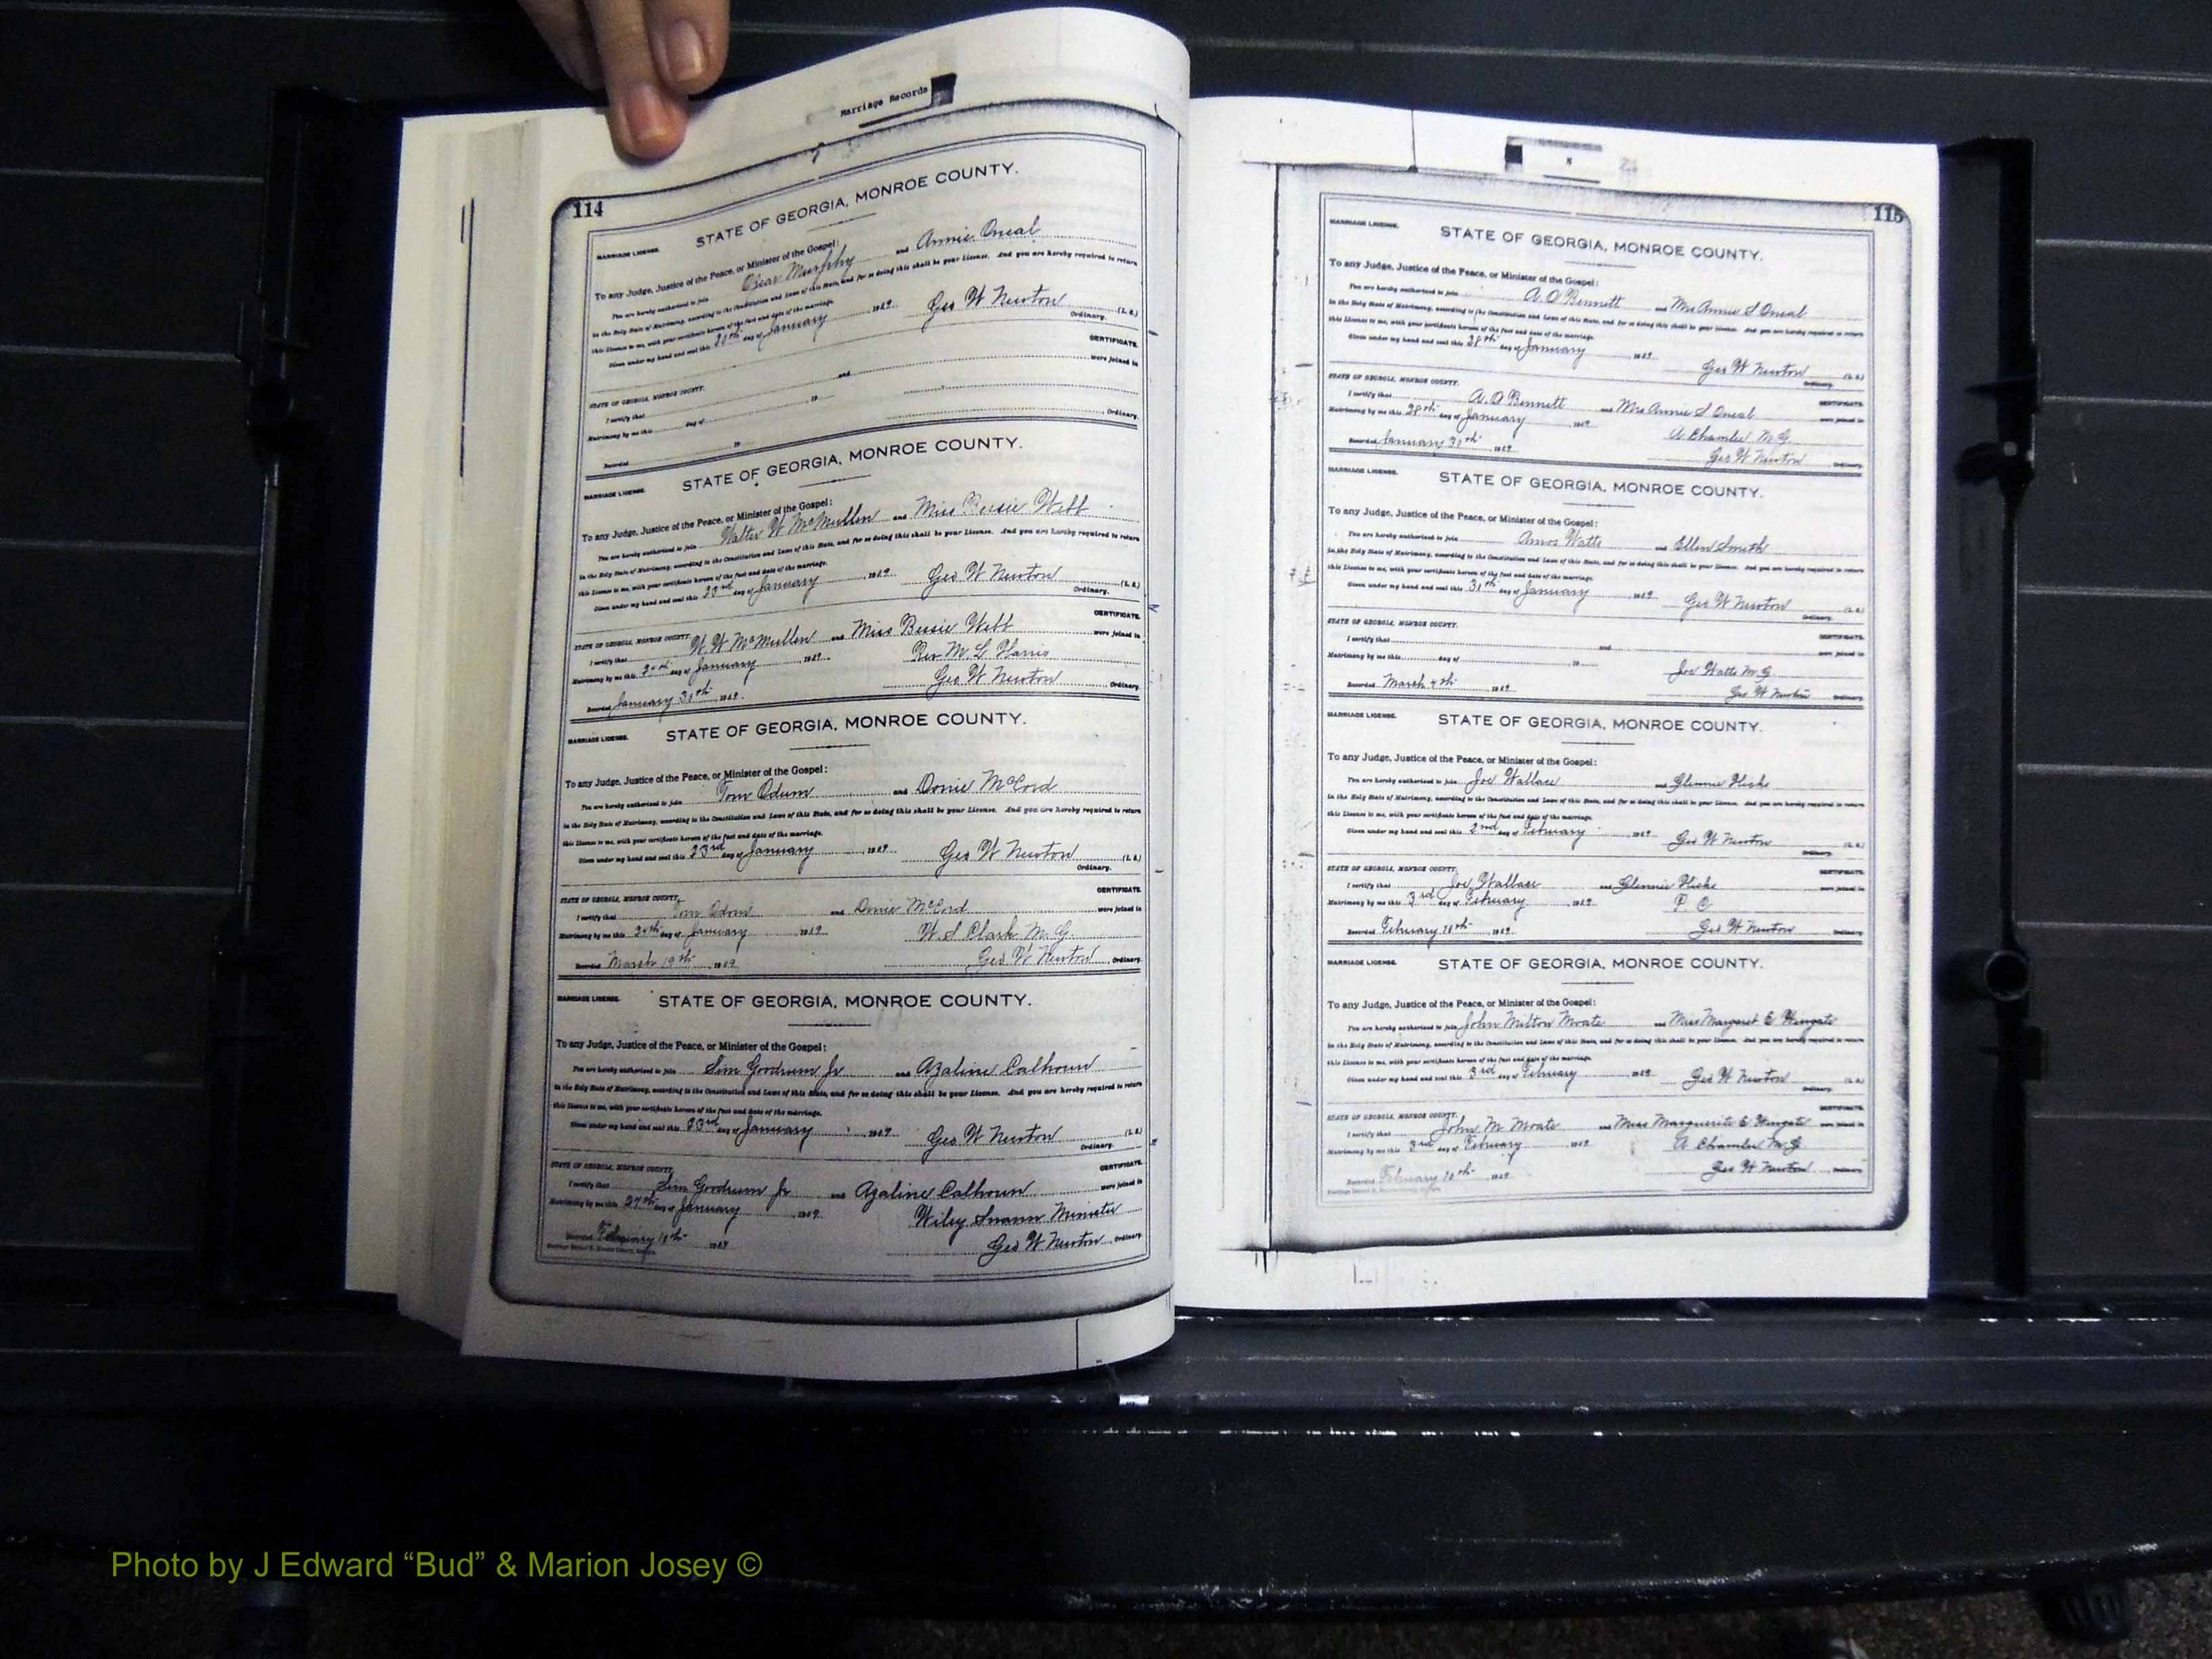 Marriage Records
114
STATE OF GEORGIA, MONROE COUNTY.
MARRIAGE LICENSE.
To any Judge, Justice of the Peace, or Minister of the Gospel:
You are hereby authorized to join Oscar Murphy and Annie Oneal
in the Holy State of Matrimony, according to the Constitution and Laws of this State, and for so doing this shall be your License. And you are hereby required to return
this License to me, with your certificate hereon of the fact and date of the marriage.
Given under my hand and seal this day of January, 1909. Geo W Newton (L. S.)
Ordinary.
CERTIFICATE.
STATE OF GEORGIA, MONROE COUNTY.
I certify that and were joined in
Matrimony by me this day of , 19
Recorded 19 Ordinary.
STATE OF GEORGIA, MONROE COUNTY.
MARRIAGE LICENSE.
To any Judge, Justice of the Peace, or Minister of the Gospel:
You are hereby authorized to join Walter W McMullen and Miss Bessie Webb
in the Holy State of Matrimony, according to the Constitution and Laws of this State, and for so doing this shall be your License. And you are hereby required to return
this License to me, with your certificate hereon of the fact and date of the marriage.
Given under my hand and seal this 23rd day of January, 1909. Geo W Newton (L. S.)
Ordinary.
CERTIFICATE.
STATE OF GEORGIA, MONROE COUNTY.
I certify that W. W McMullen and Miss Bessie Webb were joined in
Matrimony by me this 24th day of January, 1909. Rev M. L Harris
Recorded January 30th, 1909. Geo W Newton Ordinary.
MARRIAGE LICENSE. STATE OF GEORGIA, MONROE COUNTY.
To any Judge, Justice of the Peace, or Minister of the Gospel:
You are hereby authorized to join Tom Odum and Donie McCord
in the Holy State of Matrimony, according to the Constitution and Laws of this State, and for so doing this shall be your License. And you are hereby required to return
this License to me, with your certificate hereon of the fact and date of the marriage.
Given under my hand and seal this 23rd day of January, 1909. Geo W Newton (L. S.)
Ordinary.
CERTIFICATE.
STATE OF GEORGIA, MONROE COUNTY.
I certify that Tom Odom and Donie McCord were joined in
Matrimony by me this 24th day of January, 1909. W. S Clark M. G.
Recorded March 19th, 1909 Geo W Newton, Ordinary.
MARRIAGE LICENSE. STATE OF GEORGIA, MONROE COUNTY.
To any Judge, Justice of the Peace, or Minister of the Gospel:
You are hereby authorized to join Sim Goodrum Jr and Azaline Calhoun
in the Holy State of Matrimony, according to the Constitution and Laws of this State, and for so doing this shall be your License. And you are hereby required to return
this License to me, with your certificate hereon of the fact and date of the marriage.
Given under my hand and seal this 23rd day of January, 1909. Geo W Newton (L. S.)
Ordinary.
CERTIFICATE.
STATE OF GEORGIA, MONROE COUNTY.
I certify that Sim Goodrum Jr and Azaline Calhoun were joined in
Matrimony by me this 24th day of January, 1909. Wiley Swann Minister
Recorded February 18th, 1909 Geo W Newton, Ordinary.
115
MARRIAGE LICENSE.
STATE OF GEORGIA, MONROE COUNTY.
To any Judge, Justice of the Peace, or Minister of the Gospel:
You are hereby authorized to join A. O Bennett and Mrs Annie S Oneal
in the Holy State of Matrimony, according to the Constitution and Laws of this State, and for so doing this shall be your License. And you are hereby required to return
this License to me, with your certificate hereon of the fact and date of the marriage.
Given under my hand and seal this 28th day of January, 1909. Geo W Newton (L. S.)
Ordinary.
STATE OF GEORGIA, MONROE COUNTY. CERTIFICATE.
I certify that A. O Bennett and Mrs Annie S Oneal were joined in
Matrimony by me this 28th day of January, 1909. A Chamlee M. G.
Recorded January 30th, 1909. Geo W Newton Ordinary.
MARRIAGE LICENSE. STATE OF GEORGIA, MONROE COUNTY.
To any Judge, Justice of the Peace, or Minister of the Gospel:
You are hereby authorized to join Amos Watts and Ellen Smith
in the Holy State of Matrimony, according to the Constitution and Laws of this State, and for so doing this shall be your License. And you are hereby required to return
this License to me, with your certificate hereon of the fact and date of the marriage.
Given under my hand and seal this 31th day of January, 1909. Geo W Newton (L. S.)
Ordinary.
STATE OF GEORGIA, MONROE COUNTY. CERTIFICATE.
I certify that and were joined in
Matrimony by me this day of , 19 Joe Watts M. G.
Recorded March 4th, 1909. Geo W Newton Ordinary.
MARRIAGE LICENSE. STATE OF GEORGIA, MONROE COUNTY.
To any Judge, Justice of the Peace, or Minister of the Gospel:
You are hereby authorized to join Joe Wallace and Glennie Hicks
in the Holy State of Matrimony, according to the Constitution and Laws of this State, and for so doing this shall be your License. And you are hereby required to return
this License to me, with your certificate hereon of the fact and date of the marriage.
Given under my hand and seal this 2nd day of February, 1909. Geo W Newton (L. S.)
Ordinary.
STATE OF GEORGIA, MONROE COUNTY. CERTIFICATE.
I certify that Joe Wallace and Glennie Hicks were joined in
Matrimony by me this 3rd day of February, 1909. P. C
Recorded February 18th, 1909. Geo W Newton Ordinary.
MARRIAGE LICENSE. STATE OF GEORGIA, MONROE COUNTY.
To any Judge, Justice of the Peace, or Minister of the Gospel:
You are hereby authorized to join John Milton Moate and Miss Margaret E Wingate
in the Holy State of Matrimony, according to the Constitution and Laws of this State, and for so doing this shall be your License. And you are hereby required to return
this License to me, with your certificate hereon of the fact and date of the marriage.
Given under my hand and seal this 3rd day of February, 1909. Geo W Newton (L. S.)
Ordinary.
STATE OF GEORGIA, MONROE COUNTY. CERTIFICATE.
I certify that John M Moate and Miss Marguerite E Wingate were joined in
Matrimony by me this 3rd day of February, 1909. A Chamlee M. G
Recorded February 18th, 1909. Geo W Newton Ordinary.
Photo by J Edward “Bud” & Marion Josey ©